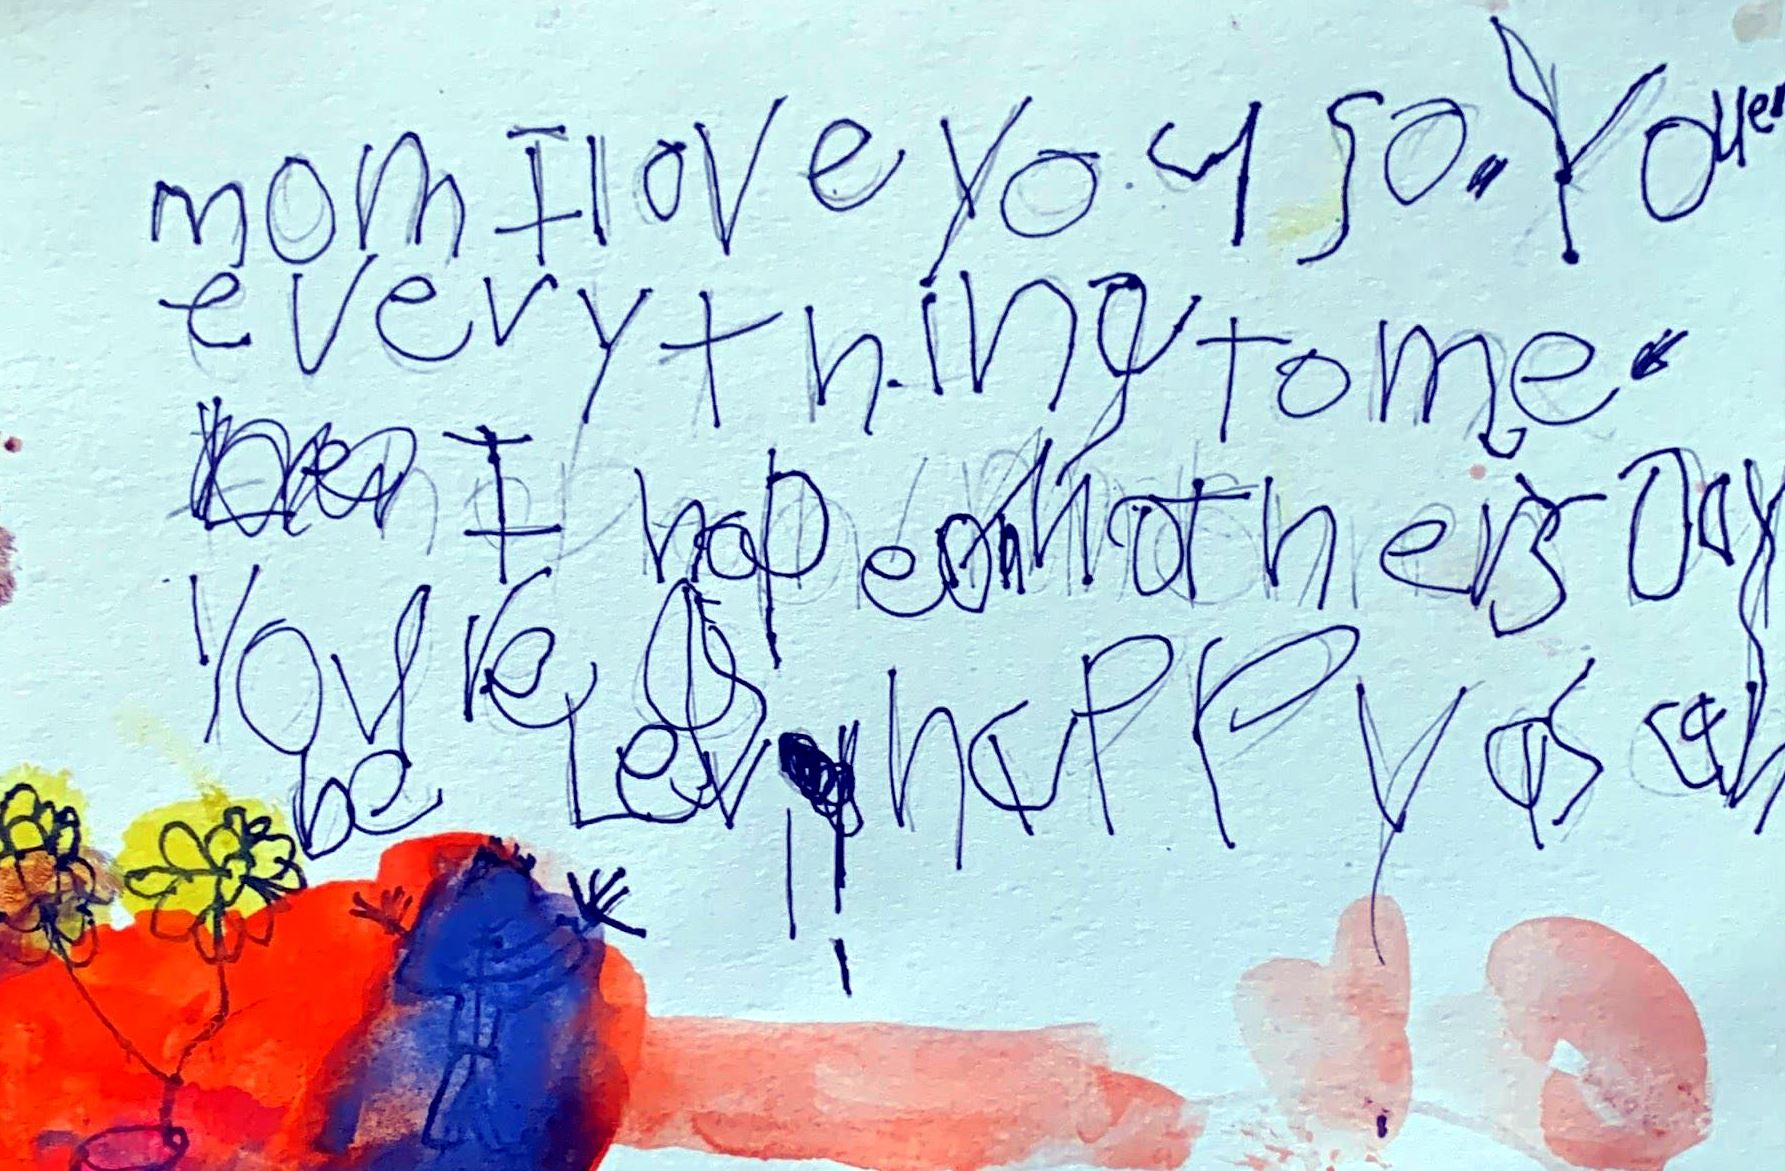 mom I love you so. You er
everything to me.
I hope on Mother's Day
you're as happy as can
be Lev